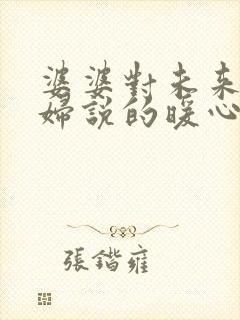 婆婆對未來
婦說的暖心
張鍇雍